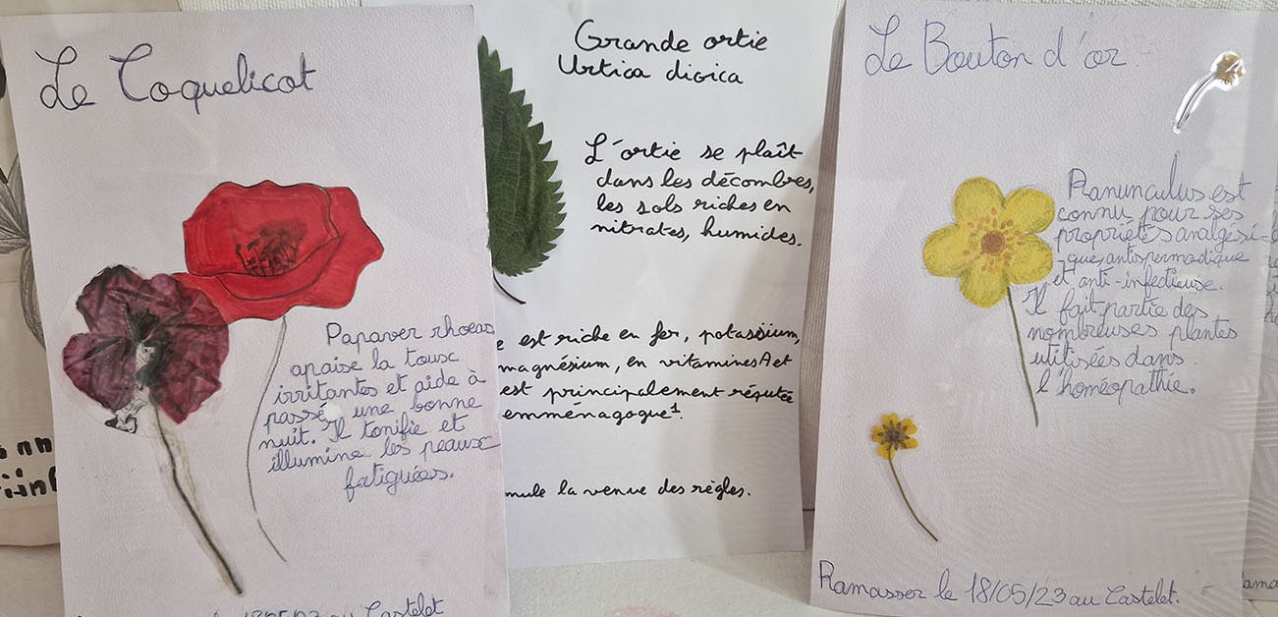 Le Coquelicot
Papaver rhoeas
apaise la toux
irritantes et aide à
passé une bonne
nuit. Il tonifie et
illumine les peaux
fatiguées.
au Castelet
Grande ortie
Urtica dioica
L'ortie se plaît
dans les décombres,
les sols riches en
nitrates, humides.
est riche en fer, potassium,
magnésium, en vitamines A et
est principalement réputée
emménagogue¹.
la venue des règles.
Le Bouton d'or
Ranunculus est
connu pour ses
propriétés analgési-
ques, antispermodique
et anti-infectieuse.
Il fait partie des
nombreuses plantes
utilisées dans
l'homéopathie.
Ramasser le 18/05/23 au Castelet.